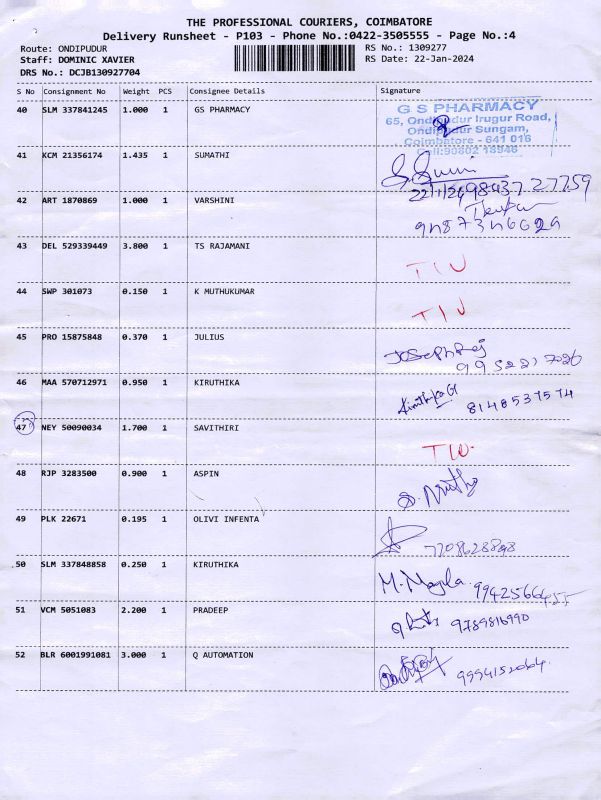 THE PROFESSIONAL COURIERS, COIMBATORE
Delivery Runsheet - P103 - Phone No.:0422-3505555 - Page No.:4
Route: ONDIPUDUR RS No.: 1309277
Staff: DOMINIC XAVIER RS Date: 22-Jan-2024
DRS No.: DCJB130927704
S No Consignment No Weight PCS Consignee Details Signature
40 SLM 337841245 1.000 1 GS PHARMACY
G S PHARMACY
65, Ondipudur Irugur Road,
Ondipudur Sungam,
Coimbatore - 641 016
41 KCM 21356174 1.435 1 SUMATHI
42 ART 1870869 1.000 1 VARSHINI
43 DEL 529339449 3.800 1 TS RAJAMANI
44 SWP 301073 0.150 1 K MUTHUKUMAR
45 PRO 15875848 0.370 1 JULIUS Joseph Raj
46 MAA 570712971 0.950 1 KIRUTHIKA Kiruthika G 8148537574
47 NEY 50090034 1.700 1 SAVITHIRI
48 RJP 3283500 0.900 1 ASPIN
49 PLK 22671 0.195 1 OLIVI INFENTA
50 SLM 337848858 0.250 1 KIRUTHIKA
51 VCM 5051083 2.200 1 PRADEEP 9789816990
52 BLR 6001991081 3.000 1 Q AUTOMATION 9994152064